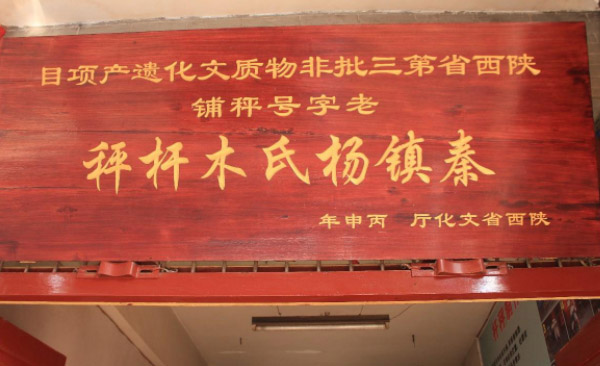 陕西省第三批非物质文化遗产项目
老字号秤铺
秦镇杨氏木杆秤
陕西省文化厅 丙申年